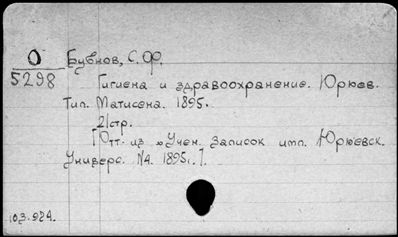 О Бубнов, С. Ф.
5298
Гигиена и здравоохранение. Юрьев.
Тип. Матисена. 1895.
21стр.
[Отт. из "Учен. Записок имп. Юрьевск.
Универс. N4. 1895г.].
103.924.